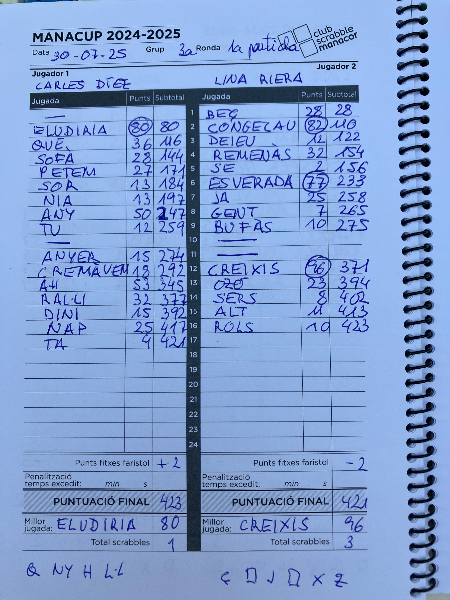 MANACUP 2024-2025
club scrabble manacor
Data 30-07-25 Grup 3a Ronda 1a partida
Jugador 1 Jugador 2
CARLES DÍEZ LINA RIERA
Jugada Punts Subtotal Jugada Punts Subtotal
— 1 BEC 28 28
ELUDIRIA 80 80 2 CONGELAU 82 110
QUÈ 36 116 3 DEIEU 12 122
SOFA 28 144 4 REMENAS 32 154
PETEM 27 171 5 SE 2 156
SOR 13 184 6 ESVERADA 77 233
NIA 13 197 7 JA 25 258
ANY 50 247 8 GENT 7 265
TU 12 259 9 BUFAS 10 275
— 10 —
ANYER 15 274 11 —
CREMAVEM 18 292 12 CREIXIS 96 371
AH 53 345 13 OZÓ 23 394
RAL·LI 32 377 14 SERS 8 402
DINI 15 392 15 ALT 11 413
NAP 25 417 16 ROLS 10 423
TA 4 421 17
18
19
20
21
22
23
24
Punts fitxes faristol +2 Punts fitxes faristol -2
Penalització temps excedit: min s Penalització temps excedit: min s
PUNTUACIÓ FINAL 423 PUNTUACIÓ FINAL 421
Millor jugada: ELUDIRIA 80 Millor jugada: CREIXIS 96
Total scrabbles 1 Total scrabbles 3
Q NY H L·L Ç J X Z